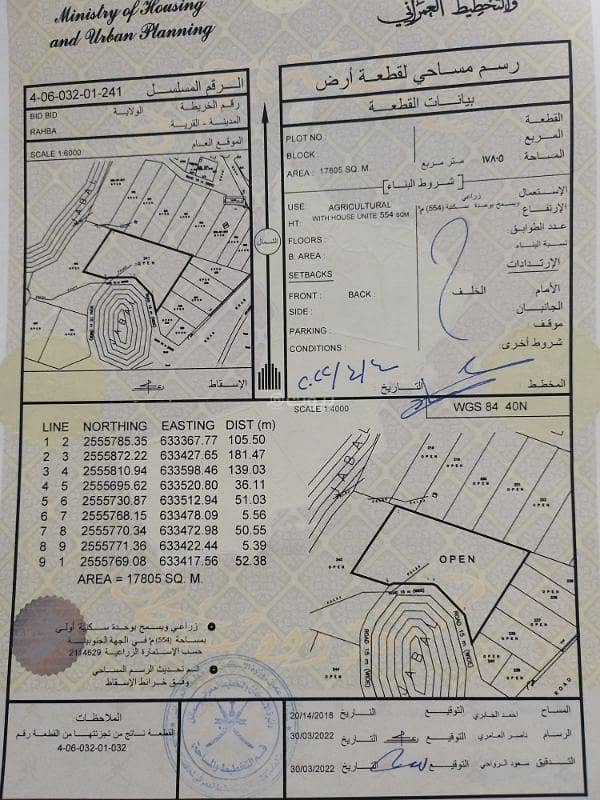 Ministry of Housing
and Urban Planning
والتخطيط العمراني
4-06-032-01-241 الرقم المسلسل
BID BID الولاية رقم الخريطة
RAHBA المدينة - القرية
SCALE 1:6000 الموقع العام
JABAL
OPEN
JABAL
الإسقاط
الشمال
رسم مساحي لقطعة أرض
بيانات القطعة
PLOT NO : القطعة
BLOCK : المربع
AREA : 17805 SQ. M. ١٧٨٠٥ متر مربع المساحة
شروط البناء
USE AGRICULTURAL زراعي الإستعمال
HT: WITH HOUSE UNITE 554 SQM ويسمح بوحدة سكنية (554) م٢ الإرتفاع
FLOORS : عدد الطوابق
B. AREA : نسبة البناء
SETBACKS الإرتدادات
FRONT : BACK : الخلف الأمام
SIDE : الجانبان
PARKING : موقف
CONDITIONS : شروط أخرى
التاريخ المخطط
SCALE 1:4000 WGS 84 40N
LINE NORTHING EASTING DIST (m)
1 2 2555785.35 633367.77 105.50
2 3 2555872.22 633427.65 181.47
3 4 2555810.94 633598.46 139.03
4 5 2555695.62 633520.80 36.11
5 6 2555730.87 633512.94 51.03
6 7 2555768.15 633478.09 5.56
7 8 2555770.34 633472.98 50.55
8 9 2555771.36 633422.44 5.39
9 1 2555769.08 633417.56 52.38
AREA = 17805 SQ. M.
JABAL
OPEN
OPEN
OPEN
OPEN
OPEN
OPEN
ROAD 15 m (WIDE)
ROAD 15 m (WIDE)
ROAD 15 m (WIDE)
JABAL
ROAD
زراعي ويسمح بوحدة سكنية أولي
بمساحة (554) م٢ في الجهة الجنوبية
حسب الإستمارة الزراعية 2114629
تم تحديث الرسم المساحي
وفق خرائط الإسقاط
الملاحظات
القطعة ناتج من تجزئتها من القطعة رقم
4-06-032-01-032
20/14/2018 التاريخ التوقيع احمد الجابري المساح
30/03/2022 التاريخ التوقيع ناصر العامري الرسام
30/03/2022 التاريخ التوقيع سعود الرواحي التدقيق